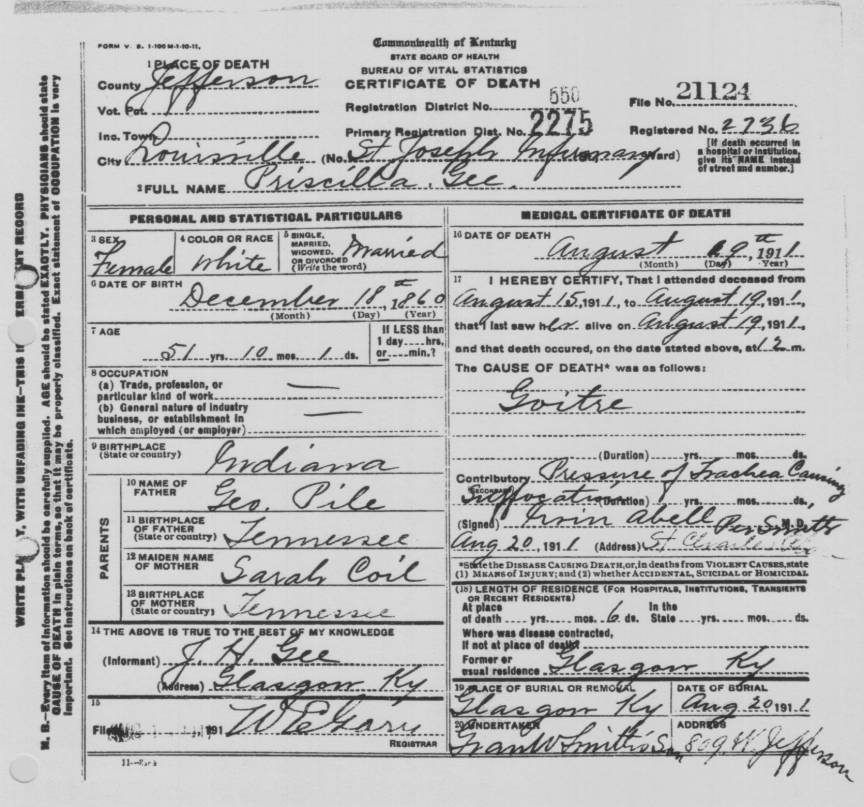 FORM V. S. 1-100 M-1-10-11.
Commonwealth of Kentucky
STATE BOARD OF HEALTH
BUREAU OF VITAL STATISTICS
CERTIFICATE OF DEATH
1 PLACE OF DEATH
County Jefferson
Vot. Pct.
Inc. Town
City Louisville (No. St Joseph Infirmary Ward)
Registration District No. 650
Primary Registration Dist. No. 2275
File No. 21124
Registered No. 2736
[If death occurred in a hospital or institution, give its NAME instead of street and number.]
2 FULL NAME Priscilla Gee.
PERSONAL AND STATISTICAL PARTICULARS
3 SEX Female
4 COLOR OR RACE White
5 SINGLE, MARRIED, WIDOWED, OR DIVORCED (Write the word) Married
6 DATE OF BIRTH December 18th, 1860
(Month) (Day) (Year)
7 AGE 51 yrs. 10 mos. 1 ds.
If LESS than 1 day....hrs, or....min.?
8 OCCUPATION
(a) Trade, profession, or particular kind of work —
(b) General nature of industry business, or establishment in which employed (or employer) —
9 BIRTHPLACE (State or country) Indiana
PARENTS
10 NAME OF FATHER Geo. Pile
11 BIRTHPLACE OF FATHER (State or country) Tennessee
12 MAIDEN NAME OF MOTHER Sarah Coil
13 BIRTHPLACE OF MOTHER (State or country) Tennessee
14 THE ABOVE IS TRUE TO THE BEST OF MY KNOWLEDGE
(Informant) J. H. Gee
(Address) Glasgow Ky
15
Filed 191 W E Gary
REGISTRAR
MEDICAL CERTIFICATE OF DEATH
16 DATE OF DEATH August 19th, 1911
(Month) (Day) (Year)
17 I HEREBY CERTIFY, That I attended deceased from
August 15, 1911, to August 19, 1911,
that I last saw her alive on August 19, 1911,
and that death occured, on the date stated above, at 12 m.
The CAUSE OF DEATH* was as follows:
Goitre
(Duration) yrs. mos. ds.
Contributory Pressure of Trachea Causing
(SECONDARY) Suffocation (Duration) yrs. mos. ds.
(Signed) Irvin Abell Per Smith M. D.
Aug 20, 1911 (Address) St
*State the DISEASE CAUSING DEATH, or, in deaths from VIOLENT CAUSES, state
(1) MEANS OF INJURY; and (2) whether ACCIDENTAL, SUICIDAL or HOMICIDAL
(18) LENGTH OF RESIDENCE (FOR HOSPITALS, INSTITUTIONS, TRANSIENTS OR RECENT RESIDENTS)
At place of death yrs. mos. 6 ds. In the State yrs. mos. ds.
Where was disease contracted, If not at place of death?
Former or usual residence Glasgow Ky
19 PLACE OF BURIAL OR REMOVAL Glasgow Ky
DATE OF BURIAL Aug 20, 1911
20 UNDERTAKER Gran W Smith's Son
ADDRESS 809 W Jefferson
WRITE PLAINLY, WITH UNFADING INK—THIS IS A PERMANENT RECORD
N. B.—Every item of information should be carefully supplied. AGE should be stated EXACTLY. PHYSICIANS should state
CAUSE OF DEATH in plain terms, so that it may be properly classified. Exact statement of OCCUPATION is very
important. See instructions on back of certificate.